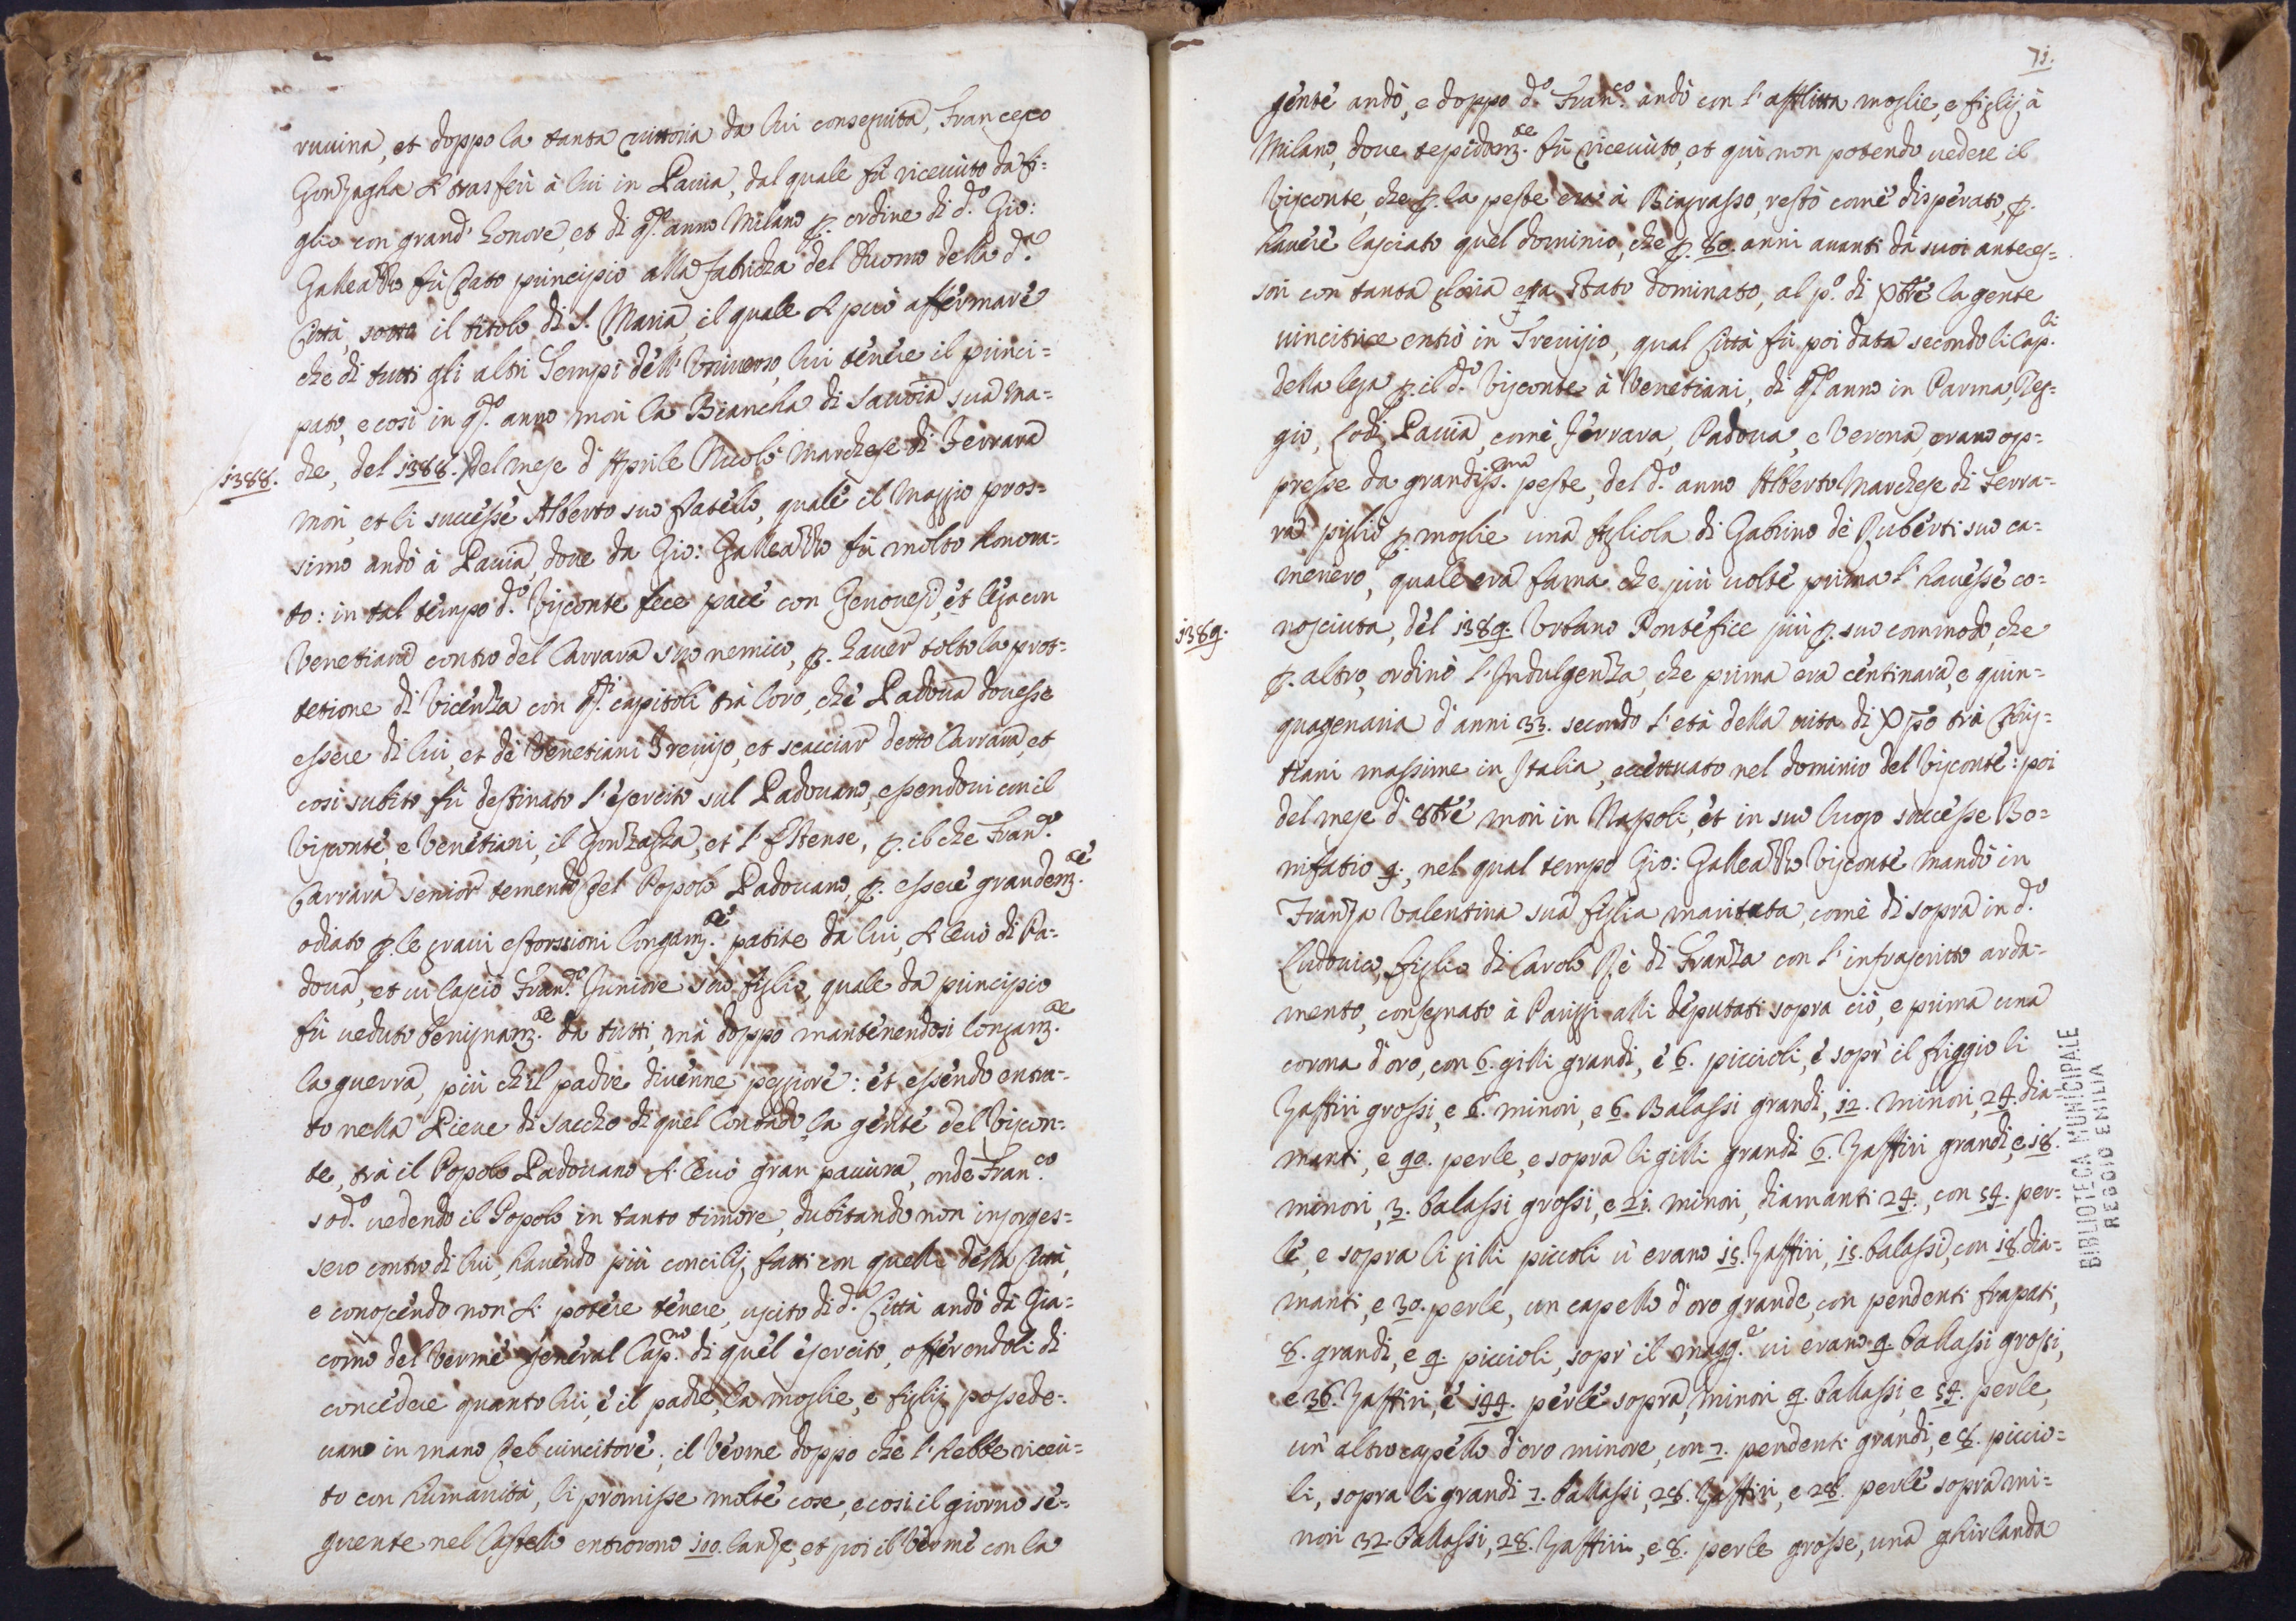 ruuina, et doppo la tanta vittoria da lui conseguita, Francesco
Gonzagha si trasferì à lui in Pauia, dal quale fù riceuuto da fi=
glio con grand' honore, et di q.to anno Milano p. ordine di d.o Gio:
Galleazzo fù dato principio alla fabricha del Duomo della d.a
Città, sotto il titolo di S. Maria, il quale si può affermare
che di tutti gli altri Tempi dell' Vniuerso, lui tenere il princi=
pato, e così in q.to anno morì la Biancha di Sauoia sua ma=
1388. dre, del 1388. del mese d' Aprile Nicolò Marchese di Ferrara
morì, et li successe Alberto suo fratello, quale il Maggio pros=
simo andò à Pauia, doue da Gio: Galleazzo fù molto honora=
to: in tal tempo d.o Visconte fece pace con Genouesi, et lega con
Venetiani contro del Carrara suo nemico, p. hauer tolto la prot=
tetione di Vicenza con q.ti capitoli trà loro, che Padoua douesse
essere di lui, et de Venetiani Treuiso, et scacciar detto Carrara, et
così subito fù destinato l'esercito sul Padouano, essendoui con il
Visconte, e Venetiani, il Gonzagha, et l' Estense, p. il che Fran.co
Carrara senior temendo del Popolo Padouano, p. essere grandem.te
odiato p. le graui estorssioni longam.te patite da lui, si leuò di Pa=
doua, et ui lasciò Fran.co Juniore suo figlio, quale da principio
fù ueduto benignam.te da tutti, mà doppo mantenendosi longam.te
la guerra, più ch'il padre diuenne peggiore: et essendo entra=
to nella Pieue di Saccho di quel Contado la gente del Viscon=
te, trà il Popolo Padouano si leuò gran pauura, onde Fran.co
sod.o uedendo il Popolo in tanto timore, dubitando non insorges=
sero contro di lui, hauendo più concilij fatti con quelli della Città,
e conoscendo non si potere tenere, uscito di d.a Città andò dà Gia=
como del Verme general Cap.no di quel esercito, offerendoli di
concedere quanto lui, è il padre, la moglie, e figlij possede=
uano in mano del uincitore; il Verme doppo che l' hebbe riceuu=
to con humanità, li promisse molte cose, e così il giorno se=
guente nel Castello entrorono 100. lanze, et poi il Verme con la
71.
gente andò, e doppo d.o Fran.co andò con l' afflitta moglie, e figlij à
Milano, doue tepidam.te fù riceuuto, et quì non potendo uedere il
Visconte, che p. la peste era à Biagrasso, restò come disperato, p.
hauere lasciato quel dominio, che p. 80. anni auanti da suoi anteces=
sori con tanta gloria era stato dominato, al p.o di Xbre la gente
uincitrice entrò in Treuiso, qual Città fù poi data secondo li Cap.li
della lega p. il d.o Visconte à Venetiani, di q.to anno in Parma, Reg=
gio, Lodi, Pauia, come Ferrara, Padoua, e Verona, erano op=
presse da grandiss.ma peste, del d.o anno Alberto Marchese di Ferra=
ra pigliò p. moglie una figliola di Gabrino de Ruberti suo ca=
meriero, quale era fama che più uolte prima l' hauesse co=
1389. nosciuta, del 1389. Vrbano Pontefice più p. suo commodo, che
p. altro, ordinò l' Indulgenza, che prima era centinara, e quin=
quagenaria d' anni 33. secondo l' età della uita di Xpo trà Chris=
tiani massime in Italia, eccettuato nel dominio del Visconte: poi
del mese d' 8bre morì in Napoli, et in suo luogo successe Bo=
nifatio 9., nel qual tempo Gio: Galleazzo Visconte mandò in
Franza Valentina sua figlia maritata, come di sopra in d.o
Ludouico, figlio di Carolo Rè di Franza con l' infrascritto arda=
mento, consegnato à Pariggi alli deputati sopra ciò, e prima una
corona d'oro, con 6. gilli grandi, è 6. piccioli, è sopr' il friggio li
Zaffiri grossi, e 6. minori, e 6. Balassi grandi, 12. minori, 24. dia=
manti, e 90. perle, e sopra li gilli grandi 6. Zaffiri grandi, e 18.
minori, 3. balassi grossi, e 21. minori, diamanti 24., con 54. per=
le, e sopra li gilli piccoli u' erano 15. Zaffiri, 15. balassi, con 18. dia=
manti, e 30. perle, un capello d'oro grande, con pendenti frapati,
8. grandi, e 9. piccioli, sopr' il magg.e ui erano 9. ballassi grossi,
e 36. Zaffiri, è 144. perle sopra, minori 9. ballassi, e 54. perle,
un' altro capello d'oro minore, con 7. pendenti grandi, e 8. piccio=
li, sopra li grandi 7. ballassi, 28. Zaffiri, e 28. perle sopra mi=
nori 32. ballassi, 28. Zaffiri, e 8. perle grosse, una ghirlanda
BIBLIOTECA MUNICIPALE
REGGIO EMILIA